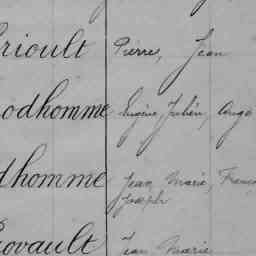 rioult Pierre, Jean
odhomme Eugène, Julien, Ange
dhomme Jean, Marie, Franço
Joseph
ovault Jean Marie